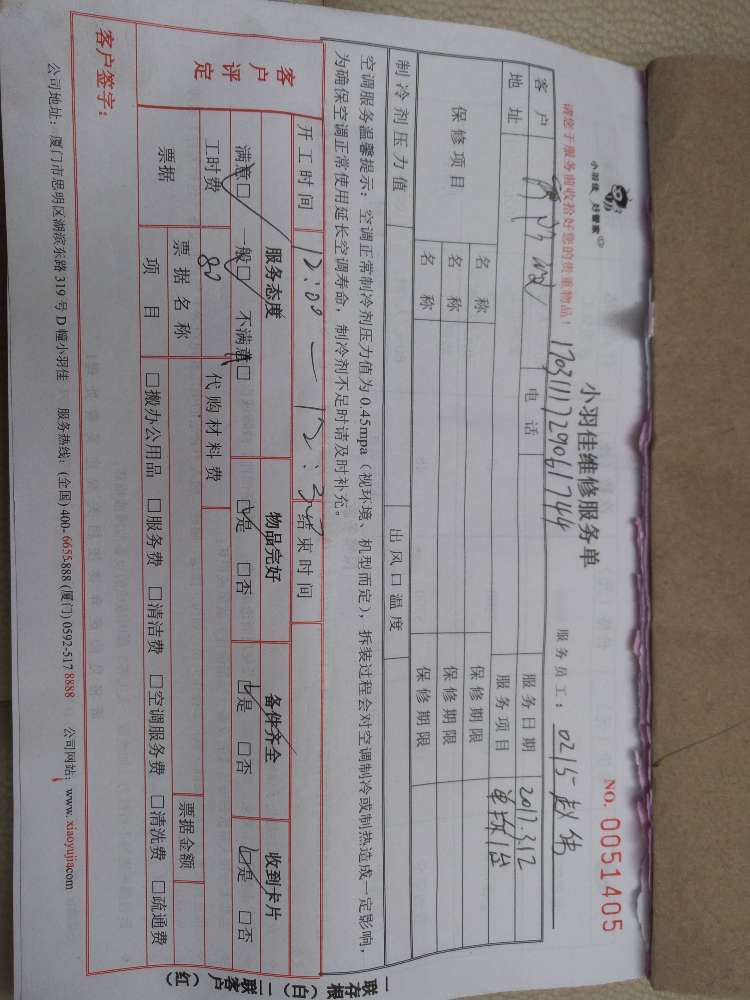 小羽佳 好管家
小羽佳维修服务单
NO. 0051405
请您于服务前收拾好您的贵重物品!
1703111729061744
服务员工: 0215
客户
电话
服务日期 2017.3.12
地址
服务项目 单拆1台
保修项目
名称
保修期限
名称
保修期限
名称
保修期限
制冷剂压力值
出风口温度
空调服务温馨提示:空调正常制冷剂压力值为 0.45mpa(视环境、机型而定),拆装过程会对空调制冷或制热造成一定影响,
为确保空调正常使用延长空调寿命,制冷剂不足时请及时补充。
开工时间 12:00 — 12:30 结束时间
客户评定
服务态度
物品完好
备件齐全
收到卡片
满意□ 一般□ 不满意□
□是 □否
□是 □否
□是 □否
工时费 80
代购材料费
票据
票据名称
票据金额
项目
□搬办公用品 □服务费 □清洁费 □空调服务费 □清洗费 □疏通费
客户签字:
公司地址:厦门市思明区湖滨东路 319 号 D 幢小羽佳 服务热线:(全国) 400-6655-888 (厦门) 0592-517 8888 公司网站:www.xiaoyujia.com
一联存根(白) 二联客户(红)